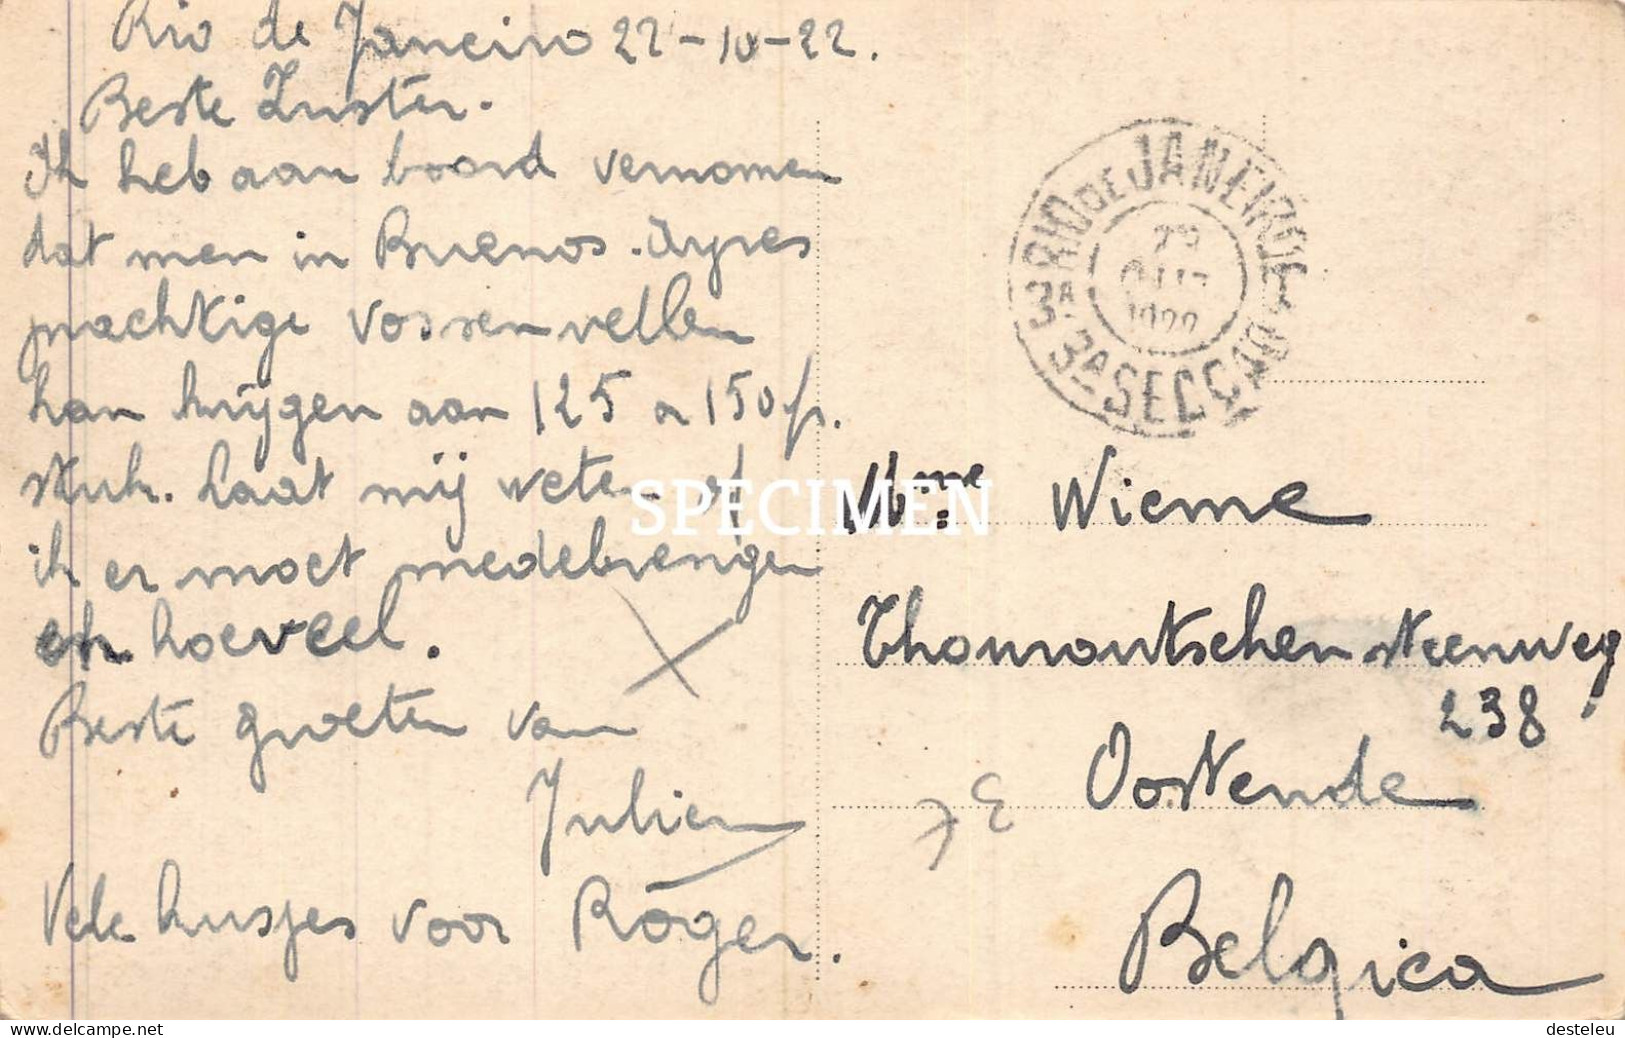 Rio de Janeiro 22-10-22.
Beste Zuster.
Ik heb aan boord vernomen
dat men in Buenos-Ayres
prachtige vossenvellen
kan krijgen aan 125 a 150 fr.
stuk. Laat mij weten of
ik er moet medebrengen
en hoeveel.
Beste groeten van
Julien
Vele kusjes voor Roger.
RIO DE JANEIRO
3ª SECÇÃO
1922
Mme Wieme
Thouroutschen steenweg
238
Oostende
Belgica
SPECIMEN
desteleu